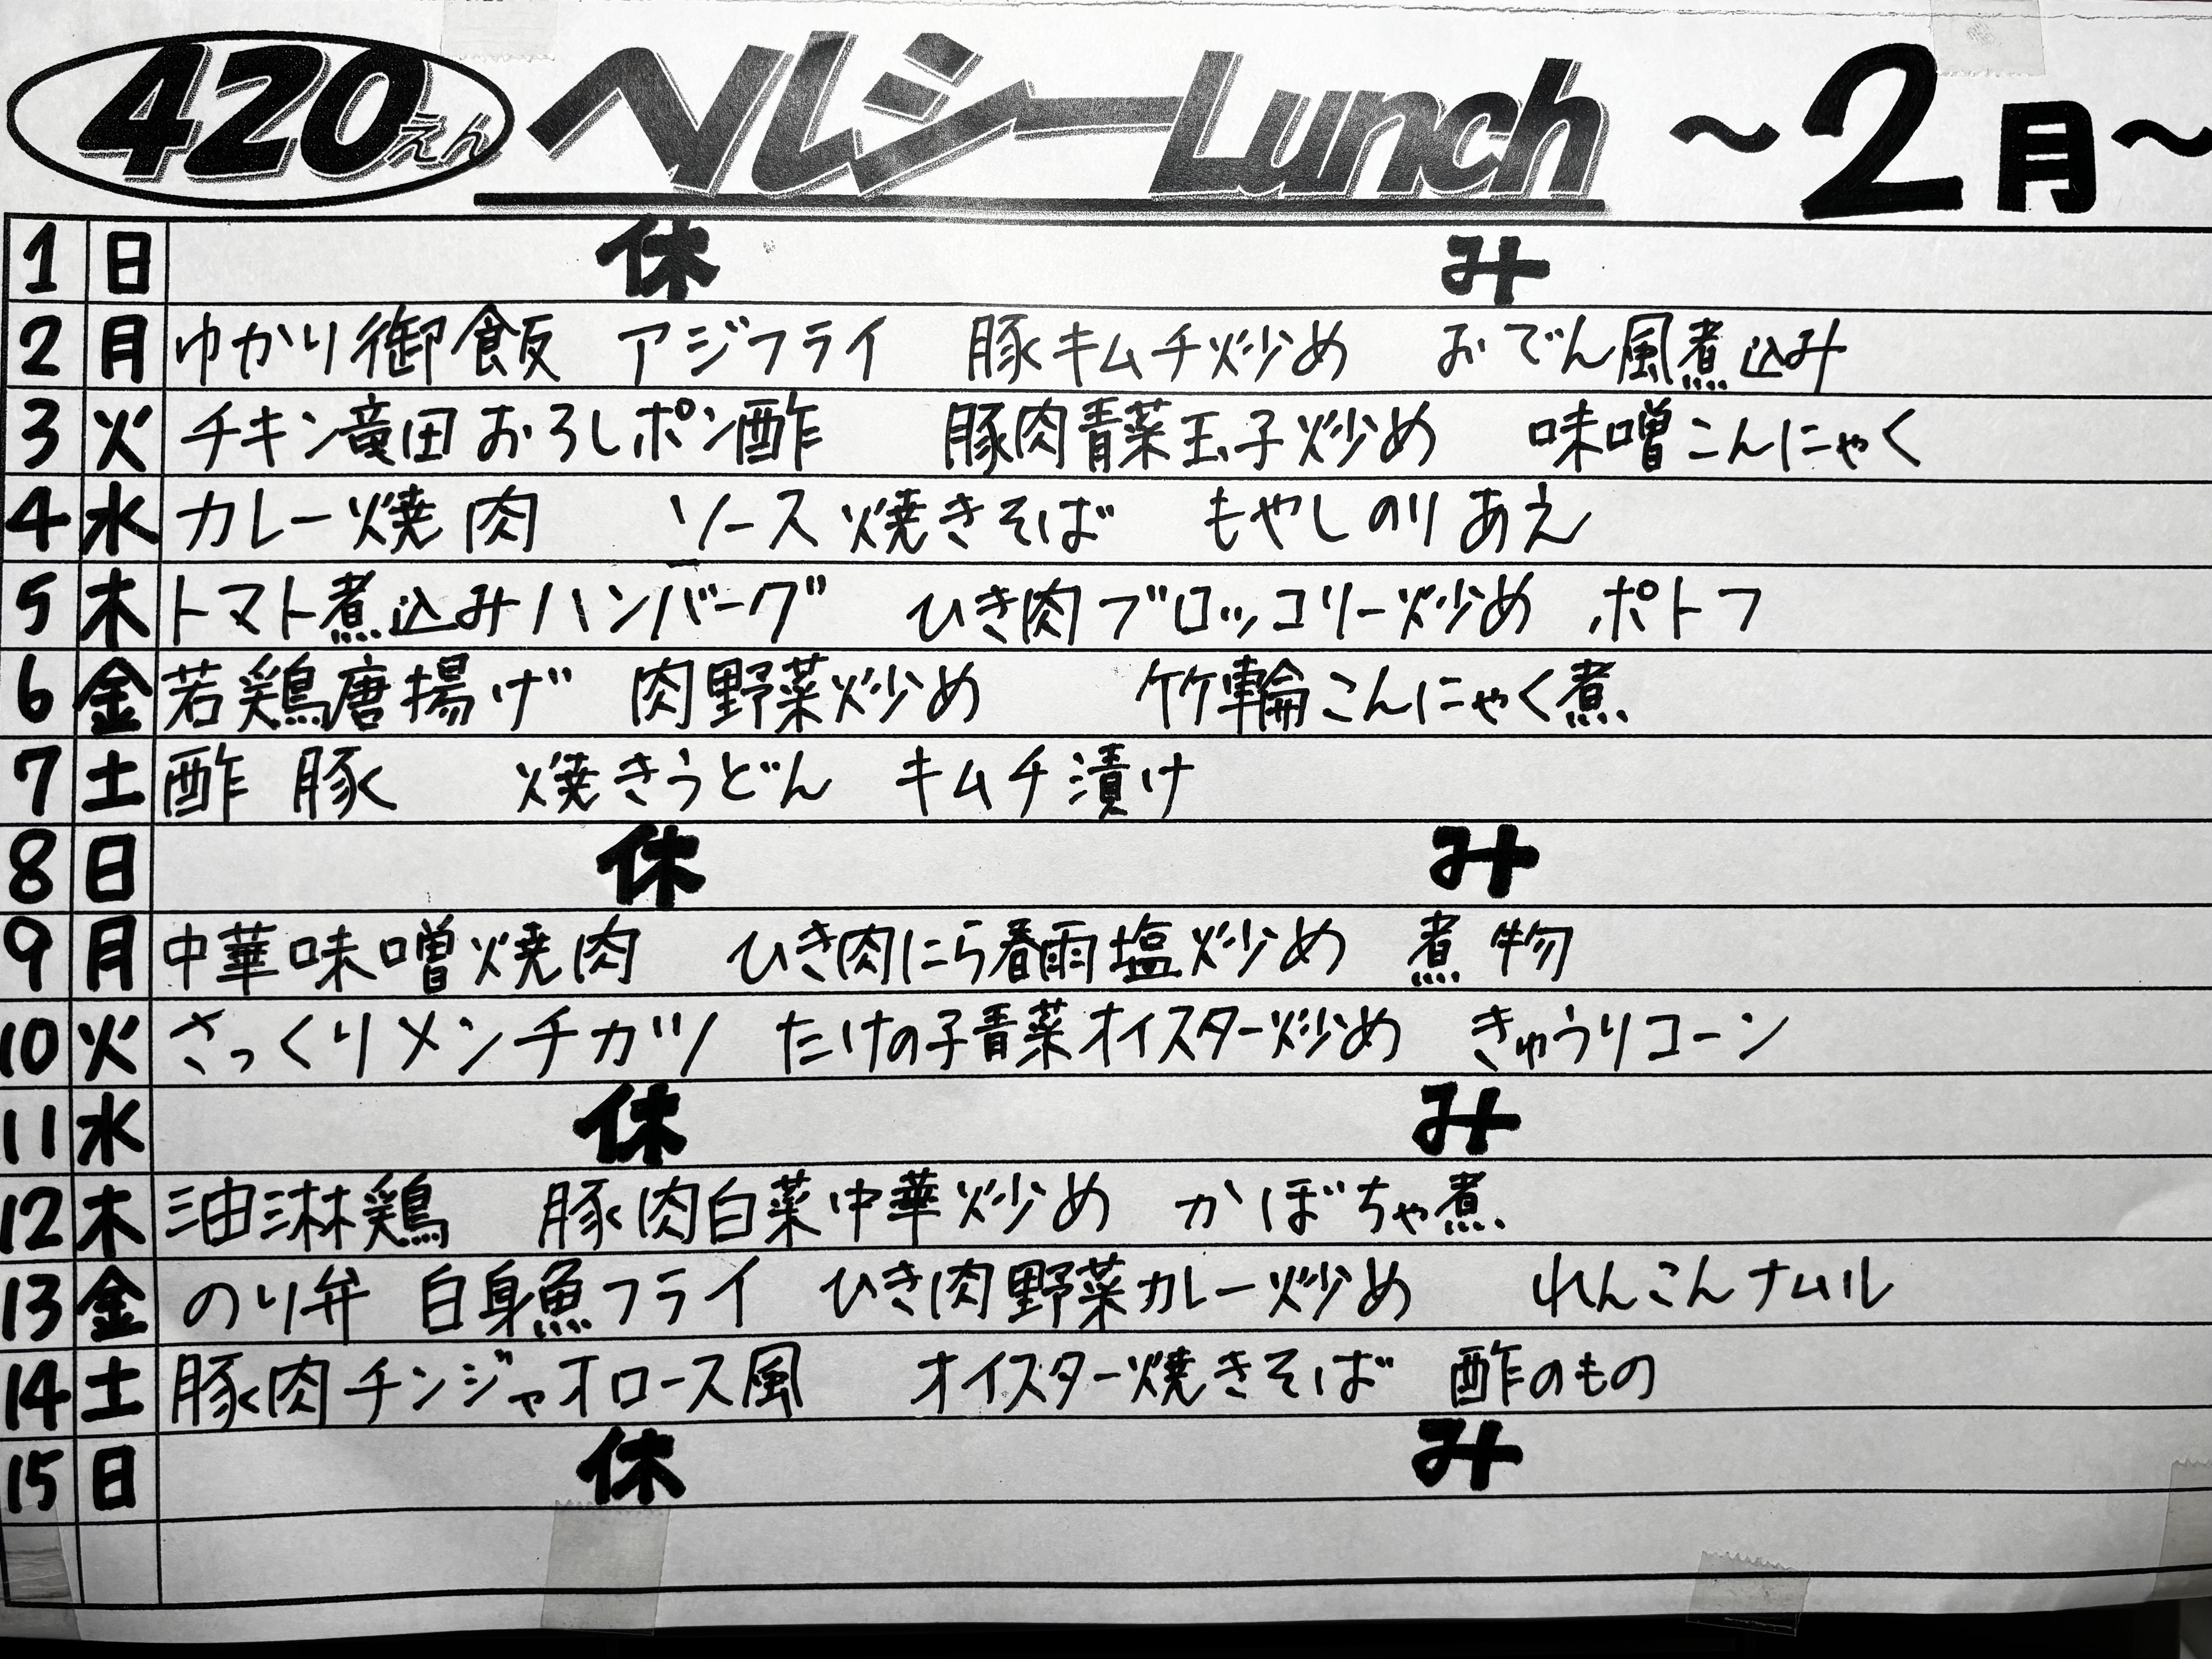 420えん ヘルシーLunch ～2月～
1 日 休み
2 月 ゆかり御飯 アジフライ 豚キムチ炒め おでん風煮込み
3 火 チキン竜田おろしポン酢 豚肉青菜玉子炒め 味噌こんにゃく
4 水 カレー焼肉 ソース焼きそば もやしのりあえ
5 木 トマト煮込みハンバーグ ひき肉ブロッコリー炒め ポトフ
6 金 若鶏唐揚げ 肉野菜炒め 竹輪こんにゃく煮
7 土 酢豚 焼きうどん キムチ漬け
8 日 休み
9 月 中華味噌焼肉 ひき肉にら春雨塩炒め 煮物
10 火 さっくりメンチカツ たけの子青菜オイスター炒め きゅうりコーン
11 水 休み
12 木 油淋鶏 豚肉白菜中華炒め かぼちゃ煮
13 金 のり弁 白身魚フライ ひき肉野菜カレー炒め れんこんナムル
14 土 豚肉チンジャオロース風 オイスター焼きそば 酢のもの
15 日 休み